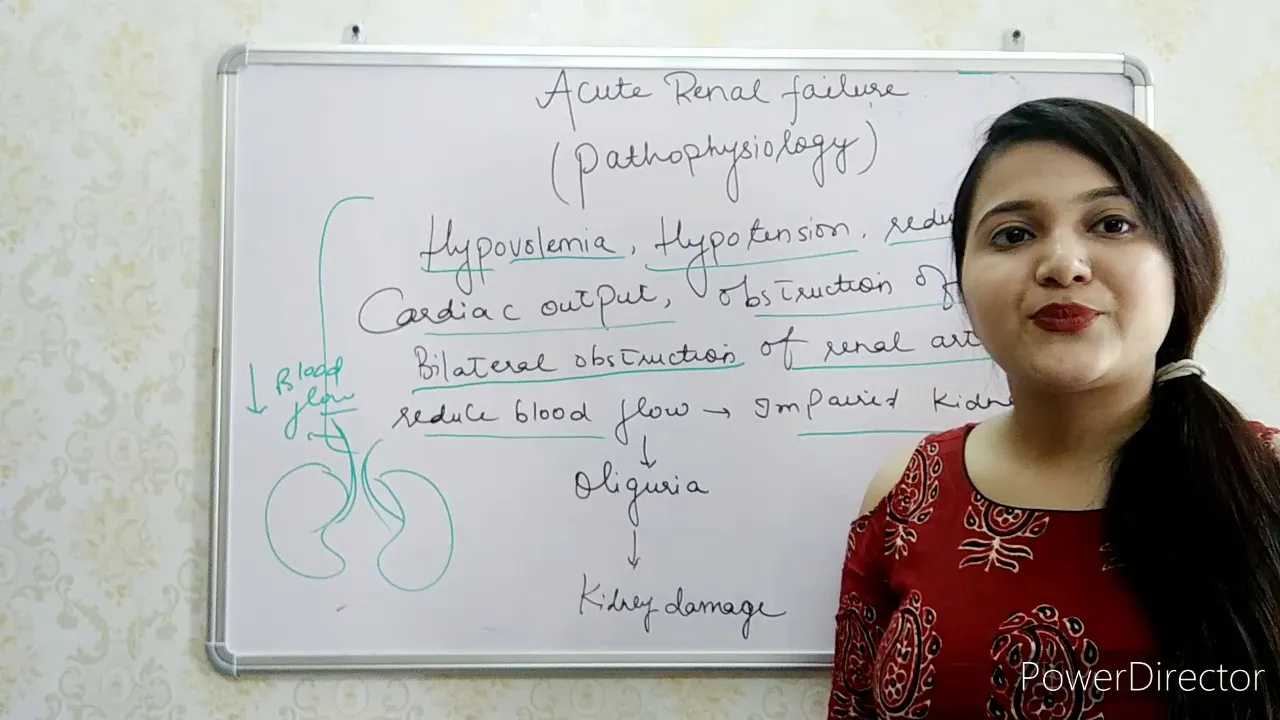 Acute Renal failure
(pathophysiology)
Hypovolemia, Hypotension, redu
Cardiac output, obstruction of
Bilateral obstruction of renal art
reduce blood flow → Impaired Kidne
↓ Blood
flow
↓
Oliguria
↓
Kidney damage
PowerDirector